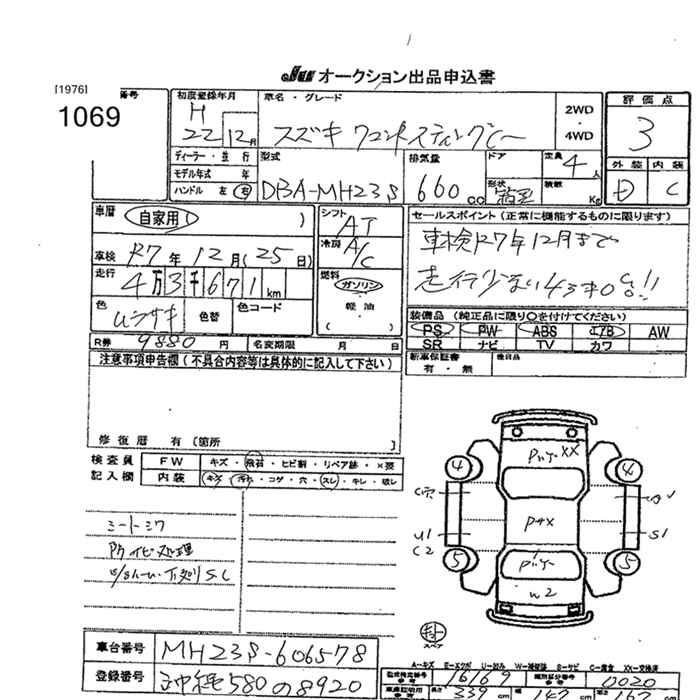 JU オークション出品申込書
[1976]
1069
番号
初度登録年月
H
22 12月
車名・グレード
スズキ ワゴンR スティングレー
2WD
・
4WD
評価点
3
外装 内装
D C
ディーラー・並行
モデル年式 年
ハンドル 左 右
型式
DBA-MH23S
排気量
660 cc
ドア
形状
箱型
定員
4人
積載
Kg
車歴
自家用 ( )
シフト
AT
冷房
A/C
車検 R7年12月(25日)
走行
4万3千671km
燃料
ガソリン
・
軽油
( )
色
ムラサキ
色替
色コード
セールスポイント(正常に機能するものに限ります)
車検R7年12月まで
走行少ない
装備品(純正品に限り○を付けてください)
PS PW ABS エアB AW
SR ナビ TV カワ
R券 9880円
名変期限 月 日
新車保証書
有・無
後日品
注意事項申告欄(不具合内容等は具体的に記入して下さい)
修復歴 有(箇所 )
検査員
記入欄
FW キズ・飛石・ヒビ割・リペア跡・×要
内装 キズ・汚れ・コゲ・穴・スレ・キレ・破レ
シートシワ
内サビ処理
下廻りS.C
XX
4 4
U1
C2
S1
5 5
W2
スペア
A-キズ E-エクボ U-凹み W-補修跡 S-サビ C-腐食 XX-交換済
車台番号 MH23S-606578
登録番号 沖縄580の8920
型式指定番号 16169 類別区分番号 0020
長さ 339 幅 147 高さ